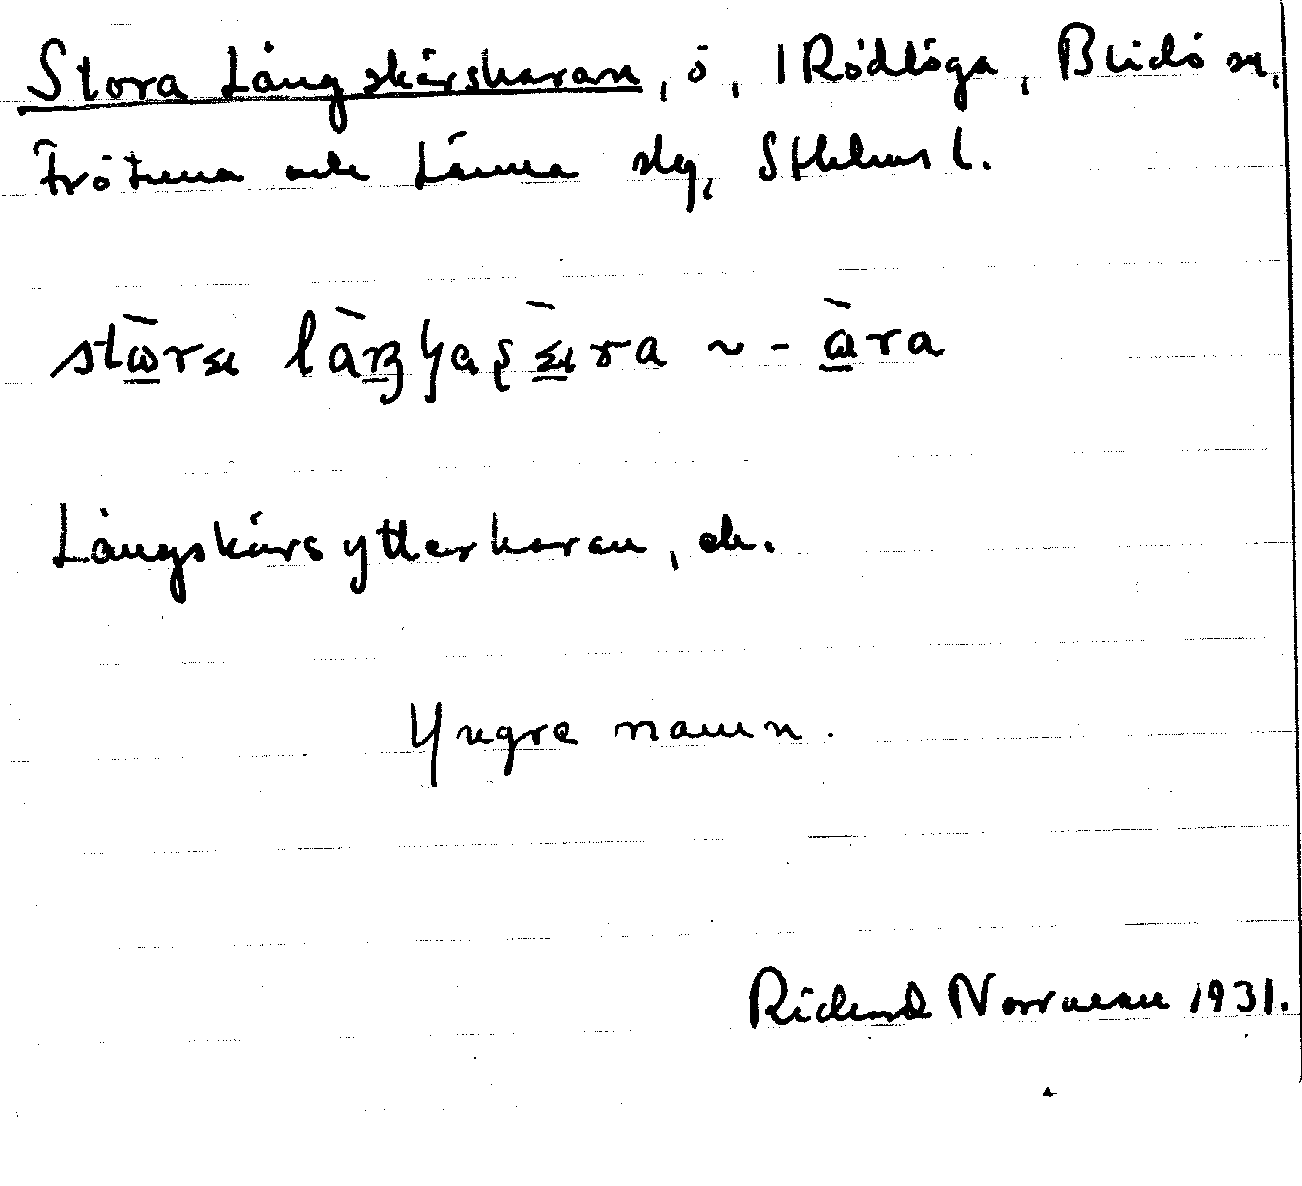 Stora Långskärsharan, ö, 1 Rödlöga, Blidö sn,
Frötuna och Länna slg, Sthlms l.
Långskärsytterharan, ek.
Yngre namn.
Rickard Norrman 1931.